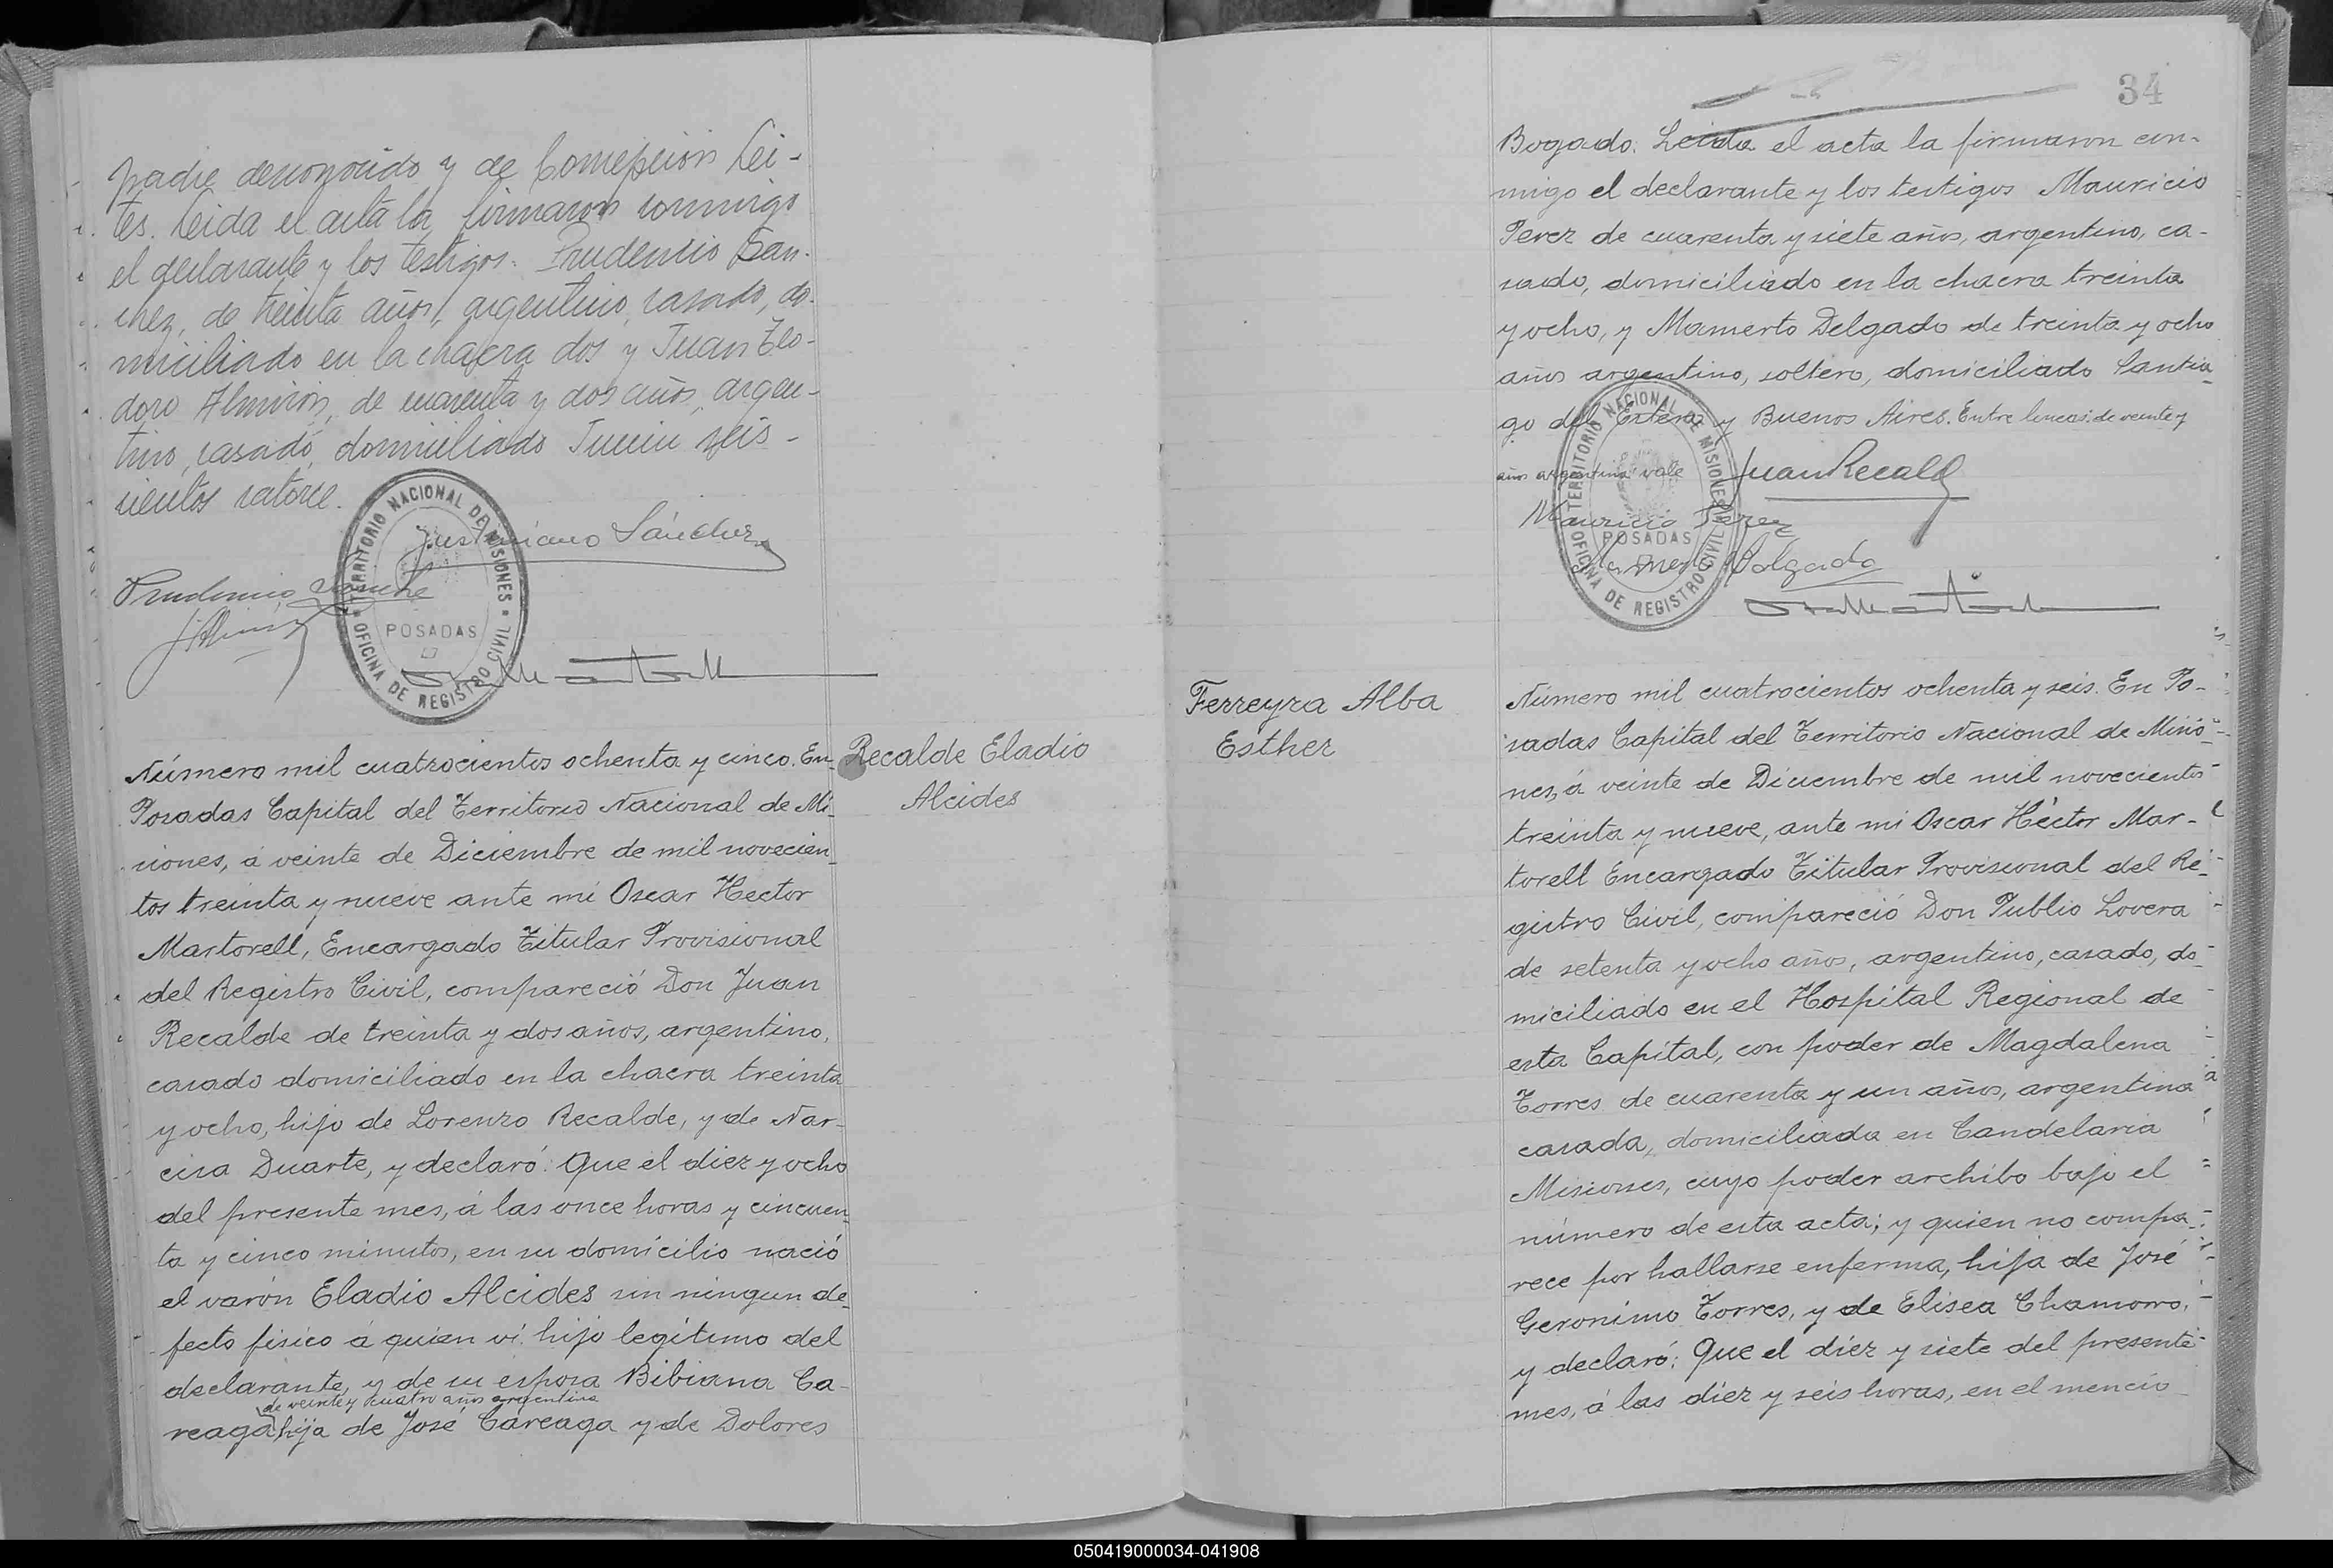 padre desconocido y de Concepción Lei-
tes. Leida el acta la firmaron conmigo
el declarante y los testigos: Prudencio San-
chez, de treinta años, argentino, casado, do-
miciliado en la chacra dos y Juan Elo-
doro Almirón, de cuarenta y dos años, argen-
tino, casado, domiciliado Junin seis-
cientos catorce.
Justiniano Sánchez
Prudencio Sanchez
TERRITORIO NACIONAL DE MISIONES
POSADAS
OFICINA DE REGISTRO CIVIL
Número mil cuatrocientos ochenta y cinco. En
Posadas Capital del Territorio Nacional de Mi-
siones, á veinte de Diciembre de mil novecien-
tos treinta y nueve ante mi Oscar Hector
Martorell, Encargado Titular Provisional
del Registro Civil, compareció Don Juan
Recalde de treinta y dos años, argentino,
casado domiciliado en la chacra treinta
y ocho, hijo de Lorenzo Recalde, y de Nar-
cisa Duarte, y declaró: Que el diez y ocho
del presente mes, á las once horas y cincuen-
ta y cinco minutos, en su domicilio nació
el varón Eladio Alcides sin ningun de-
fecto fisico á quien vi. hijo legítimo del
declarante, y de su esposa Bibiana Ca-
de veinte y cuatro años argentina
reaga hija de José Careaga y de Dolores
Recalde Eladio
Alcides
34
Bogado. Leida el acta la firmaron con-
migo el declarante y los testigos Mauricio
Perez de cuarenta y siete años, argentino, ca-
sado, domiciliado en la chacra treinta
y ocho, y Mamerto Delgado de treinta y ocho
años argentino, soltero, domiciliado Santia-
go del Estero y Buenos Aires. Entre lineas: de veinte y
años argentina vale
Juan Recalde
Mauricio Perez
Mamerto Delgado
TERRITORIO NACIONAL DE MISIONES
POSADAS
OFICINA DE REGISTRO CIVIL
Ferreyra Alba
Esther
Número mil cuatrocientos ochenta y seis. En Po-
sadas Capital del Territorio Nacional de Misio-
nes, á veinte de Diciembre de mil novecientos
treinta y nueve, ante mi Oscar Héctor Mar-
torell Encargado Titular Provisional del Re-
gistro Civil, compareció Don Publio Lovera
de setenta y ocho años, argentino, casado, do-
miciliado en el Hospital Regional de
esta Capital, con poder de Magdalena
Torres de cuarenta y un años, argentina
casada, domiciliada en Candelaria
Misiones, cuyo poder archibo bajo el
número de esta acta; y quien no compa-
rece por hallarse enferma, hija de José
Geronimo Torres, y de Elisea Chamorro,
y declaró: Que el diez y siete del presente
mes, á las diez y seis horas, en el mencio
050419000034-041908